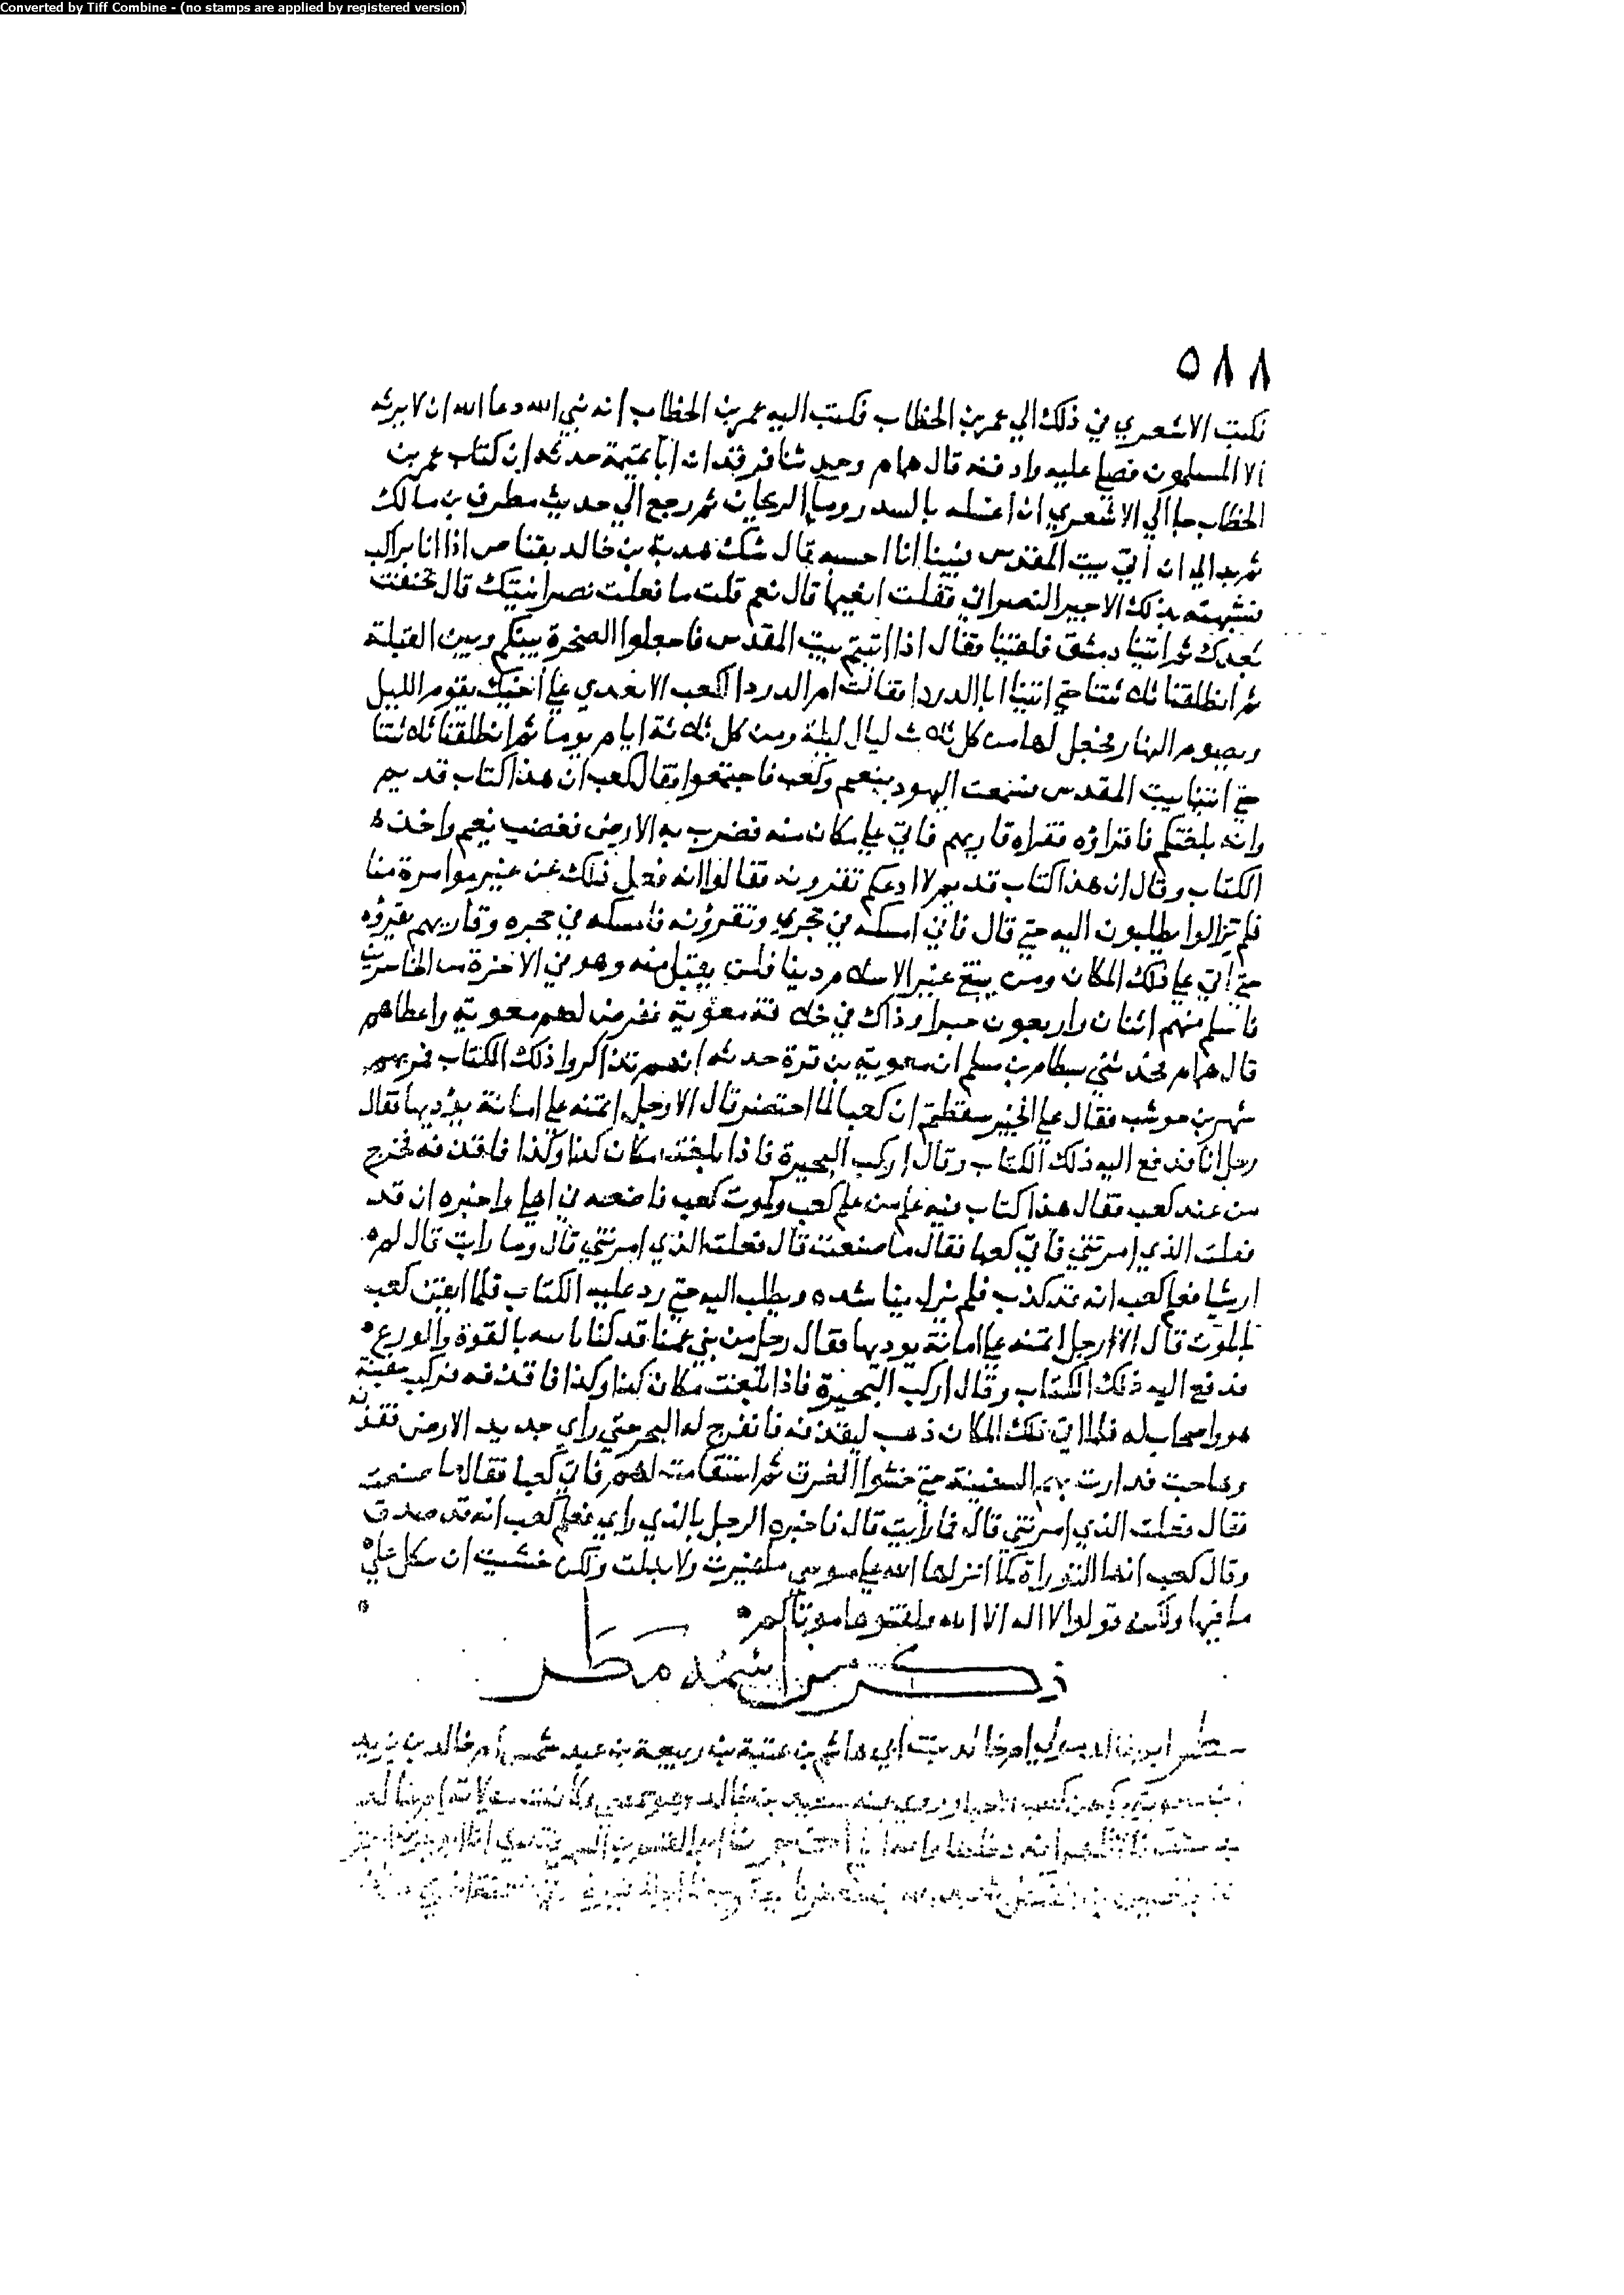 Converted by Tiff Combine - (no stamps are applied by registered version)
٥٨٨
فكتب الاشعري في ذلك الي عمر بن الخطاب فكتب اليه عمر بن الخطاب انه نبي الله دعا الله ان لا يرثه
الا المسلمون فصل عليه وادفنه قال همام وحدثنا فرقد ان ابا تميمة حدثه ان كتاب عمر بن
الخطاب جا الي الاشعري ان اغسله بالسدر وما الريحان ثم رجع الي حديث مطرف بن مالك
ثم بدا لي ان اتي بيت المقدس فبينا انا احسبه قال شك هدبة بن خالد اذا انا براكب
فشبهته بذلك الاجير النصراني فقلت قال نعم قلت ما فعلت نصرانيتك قال تحنفت
بعدك ثم اتينا دمشق فلقينا فقال اذا اتيتم بيت المقدس فاجعلوا الصخرة بينكم وبين القبلة
ثم انطلقنا ثلاثتنا حتي اتينا ابا الدردا فقالت ام الدردا لكعب الا تعدي علي اخيك يقوم الليل
ويصوم النهار فجعل لها من كل ثلاث ليال ليلة ومن كل ثلاثة ايام يوما ثم انطلقنا ثلاثتنا
حتي اتينا بيت المقدس فسمعت اليهود بنعيم وكعب فاجتمعوا فقال كعب ان هذا كتاب قديم
وانه بلغتكم فاقراؤه فقراه قاريهم فاتي علي مكان منه فضرب به الارض فغضب نعيم واخذه
الكتاب وقال ان هذا كتاب قديم لا ادعكم تقرونه فقالوا انه فعل ذلك عن غير موامرة منا
فلم يزالوا يطلبون اليه حتي قال فاني امسكه في حجري وتقرؤنه فامسكه في حجره وقاريهم يقرؤه
حتي اتي علي ذلك المكان ومن يبتغ غير الاسلام دينا فلن يقبل منه وهو في الاخرة من الخاسرين
فاسلم منهم اثنان واربعون حبرا وذاك في خلافة معوية ففرض لهم معوية واعطاهم
قال همام فحدثني بسطام بن مسلم ان معوية بن قرة حدثه انهم تذاكروا ذلك الكتاب فمر بهم
شهر بن حوشب فقال علي الخبير سقطتم ان كعبا لما احتضر قال الا رجل ائتمنه علي امانة يؤديها فقال
رجل انا فدفع اليه ذلك الكتاب وقال اركب البحيرة فاذا بلغت مكان كذا وكذا فاقذفه فخرج
من عند كعب فقال هذا كتاب فيه علم من علم كعب ويموت كعب فاضعه في اهلي واخبره ان قد
فعلت الذي امرتني فاتي كعبا فقال ما صنعت قال فعلت الذي امرتني قال وما رايت قال لم
ار شيا فعلم كعب انه قد كذب فلم يزل يناشده ويطلب اليه حتي رد عليه الكتاب فلما ايقن كعب
بالموت قال الا رجل ائتمنه علي امانة يوديها فقال رجل من بني عمنا قد كنا بالقوة والورع
فدفع اليه ذلك الكتاب وقال اركب البحيرة فاذا بلغت مكان كذا وكذا فاقذفه فركب سفينة
هو واصحاب له فلما اتي ذلك المكان ذهب ليقذفه فانفرج له البحر حتي راي جديد الارض فقذفه
وهاجت فدارت بهم السفينة حتي خشوا الغرق ثم استقامت لهم فاتي كعبا فقال ما صنعت
فقال فعلت الذي امرتني قال فما رايت قال فاخبره الرجل بالذي راي فعلم كعب انه قد صدق
وقال كعب انها التوراة كما انزلها الله علي موسي ما غيرت ولا بدلت ولكن خشيت ان يتكل علي
ما فيها ولكن قولوا لا اله الا الله ولقنوها موتاكم
ذكر من اسمه مطر
مطر ابو خالد مولي ام خالد بنت ابي هاشم بن عتبة بن ربيعة بن عبد شمس ام خالد بن يزيد
بن معوية